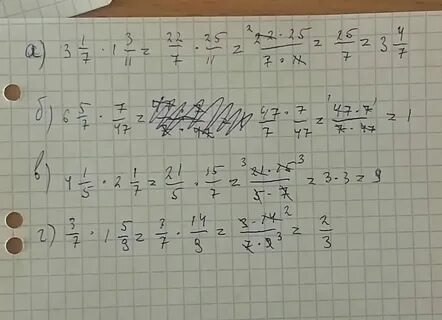 а) 3 1/7 · 1 3/11 = 22/7 · 25/11 = ² 22 · 25 / 7 · 11 = 25/7 = 3 4/7
б) 6 5/7 · 7/47 = 47/7 · 7/47 = ¹ 47 · 7 ¹ / 7 · 47 = 1
в) 4 1/5 · 2 1/7 = 21/5 · 15/7 = ³ 21 · 15 ³ / 5 · 7 = 3 · 3 = 9
г) 3/7 · 1 5/9 = 3/7 · 14/9 = 3 · 14 ² / 7 · 9 ³ = 2/3